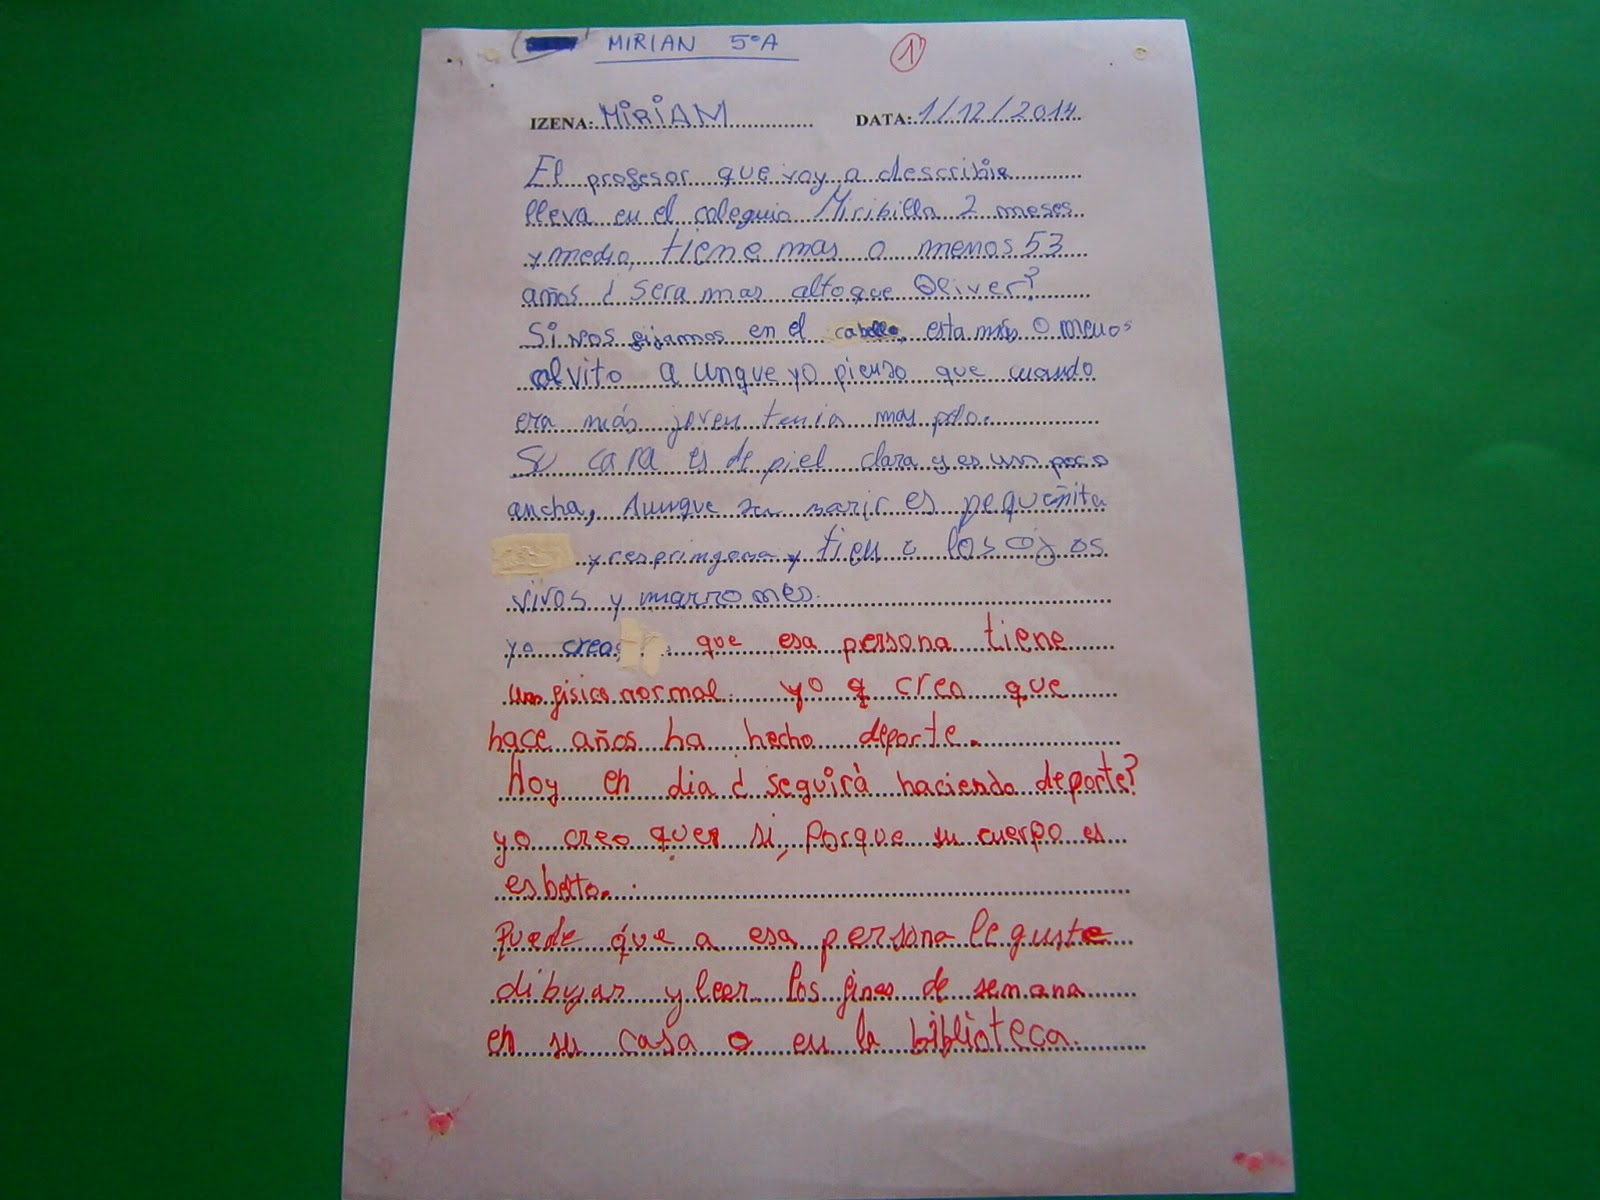 MIRIAN 5ºA
1
IZENA: MIRIAM DATA: 1/12/2014
El profesor que voy a describir
lleva en el coleguio Miribilla 2 meses
y medio, tiene mas o menos 53
años ¿ sera mas alto que Oliver?
Si nos fijamos en el cabello, esta más o menos
calvito a unque yo pienso que cuando
era más joven tenia mas pelo.
Su cara es de piel clara y es un poco
ancha, Aunque su nariz es pequeñita
y tiene los ojos
vivos y marrones.
yo creo que esa persona tiene
un fisico normal. yo q creo que
hace años ha hecho deporte.
Hoy en dia ¿ seguirá haciendo deporte?
yo creo que si, Porque su cuerpo es
esbelto.
Puede que a esa persona le guste
dibujar y leer los fines de semana
en su casa o en la biblioteca.